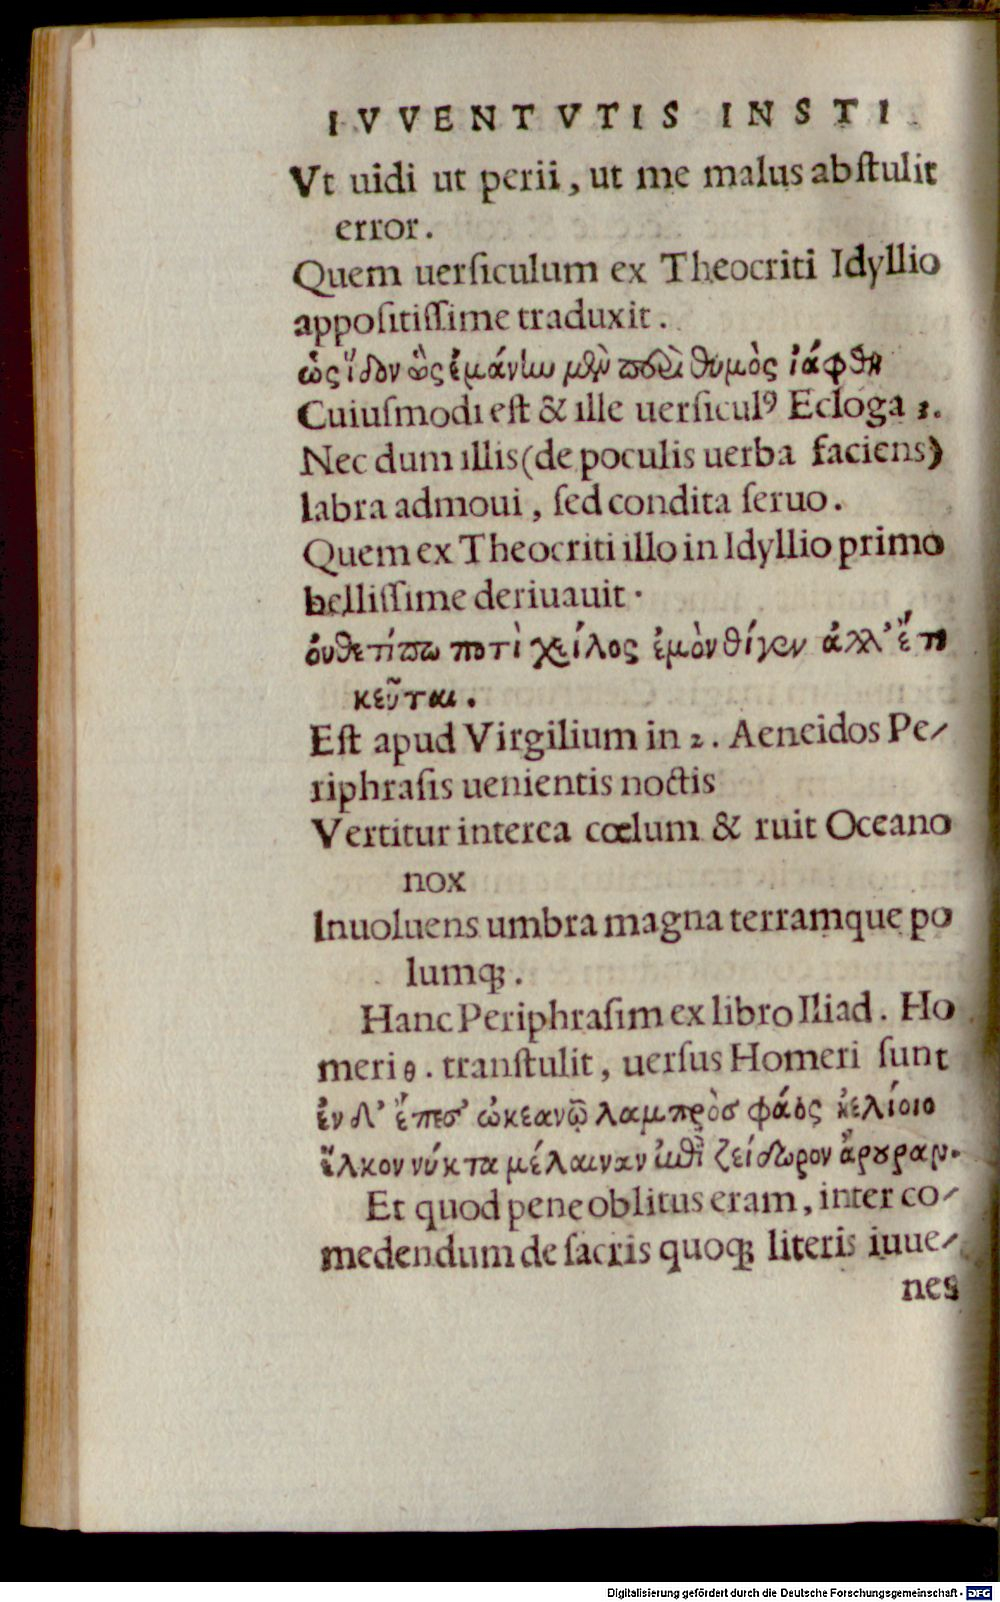 IVVENTVTIS INSTI.
Vt uidi ut perii, ut me malus abſtulit
error.
Quem uerſiculum ex Theocriti Idyllio
appoſitiſſime traduxit.
ὡς ἴδον ὣς ἐμάνην μεῦ περὶ θυμὸς ἰάφθη
Cuiuſmodi eſt & ille uerſiculꝰ Ecloga 3.
Nec dum illis(de poculis uerba faciens)
labra admoui, ſed condita ſeruo.
Quem ex Theocriti illo in Idyllio primo
belliſſime deriuauit.
ὀυθετίπω ποτὶ χείλος ἐμὸν θίγεν ἀλλ' ἔτι
κεῦται.
Eſt apud Virgilium in 2. Aeneidos Pe-
riphraſis uenientis noctis
Vertitur interea cœlum & ruit Oceano
nox
Inuoluens umbra magna terramque po
lumqꝫ.
Hanc Periphraſim ex libro Iliad. Ho
meri θ. tranſtulit, uerſus Homeri ſunt
ἐν δ' ἔπεσ' ὠκεανῶ λαμπρὸσ φάος ἠελίοιο
ἕλκον νύκτα μέλαιναν ἐπὶ ζείδωρον ἄρουραν.
Et quod pene oblitus eram, inter co-
medendum de ſacris quoqꝫ literis iuue-
nes
Digitalisierung gefördert durch die Deutsche Forschungsgemeinschaft - DFG